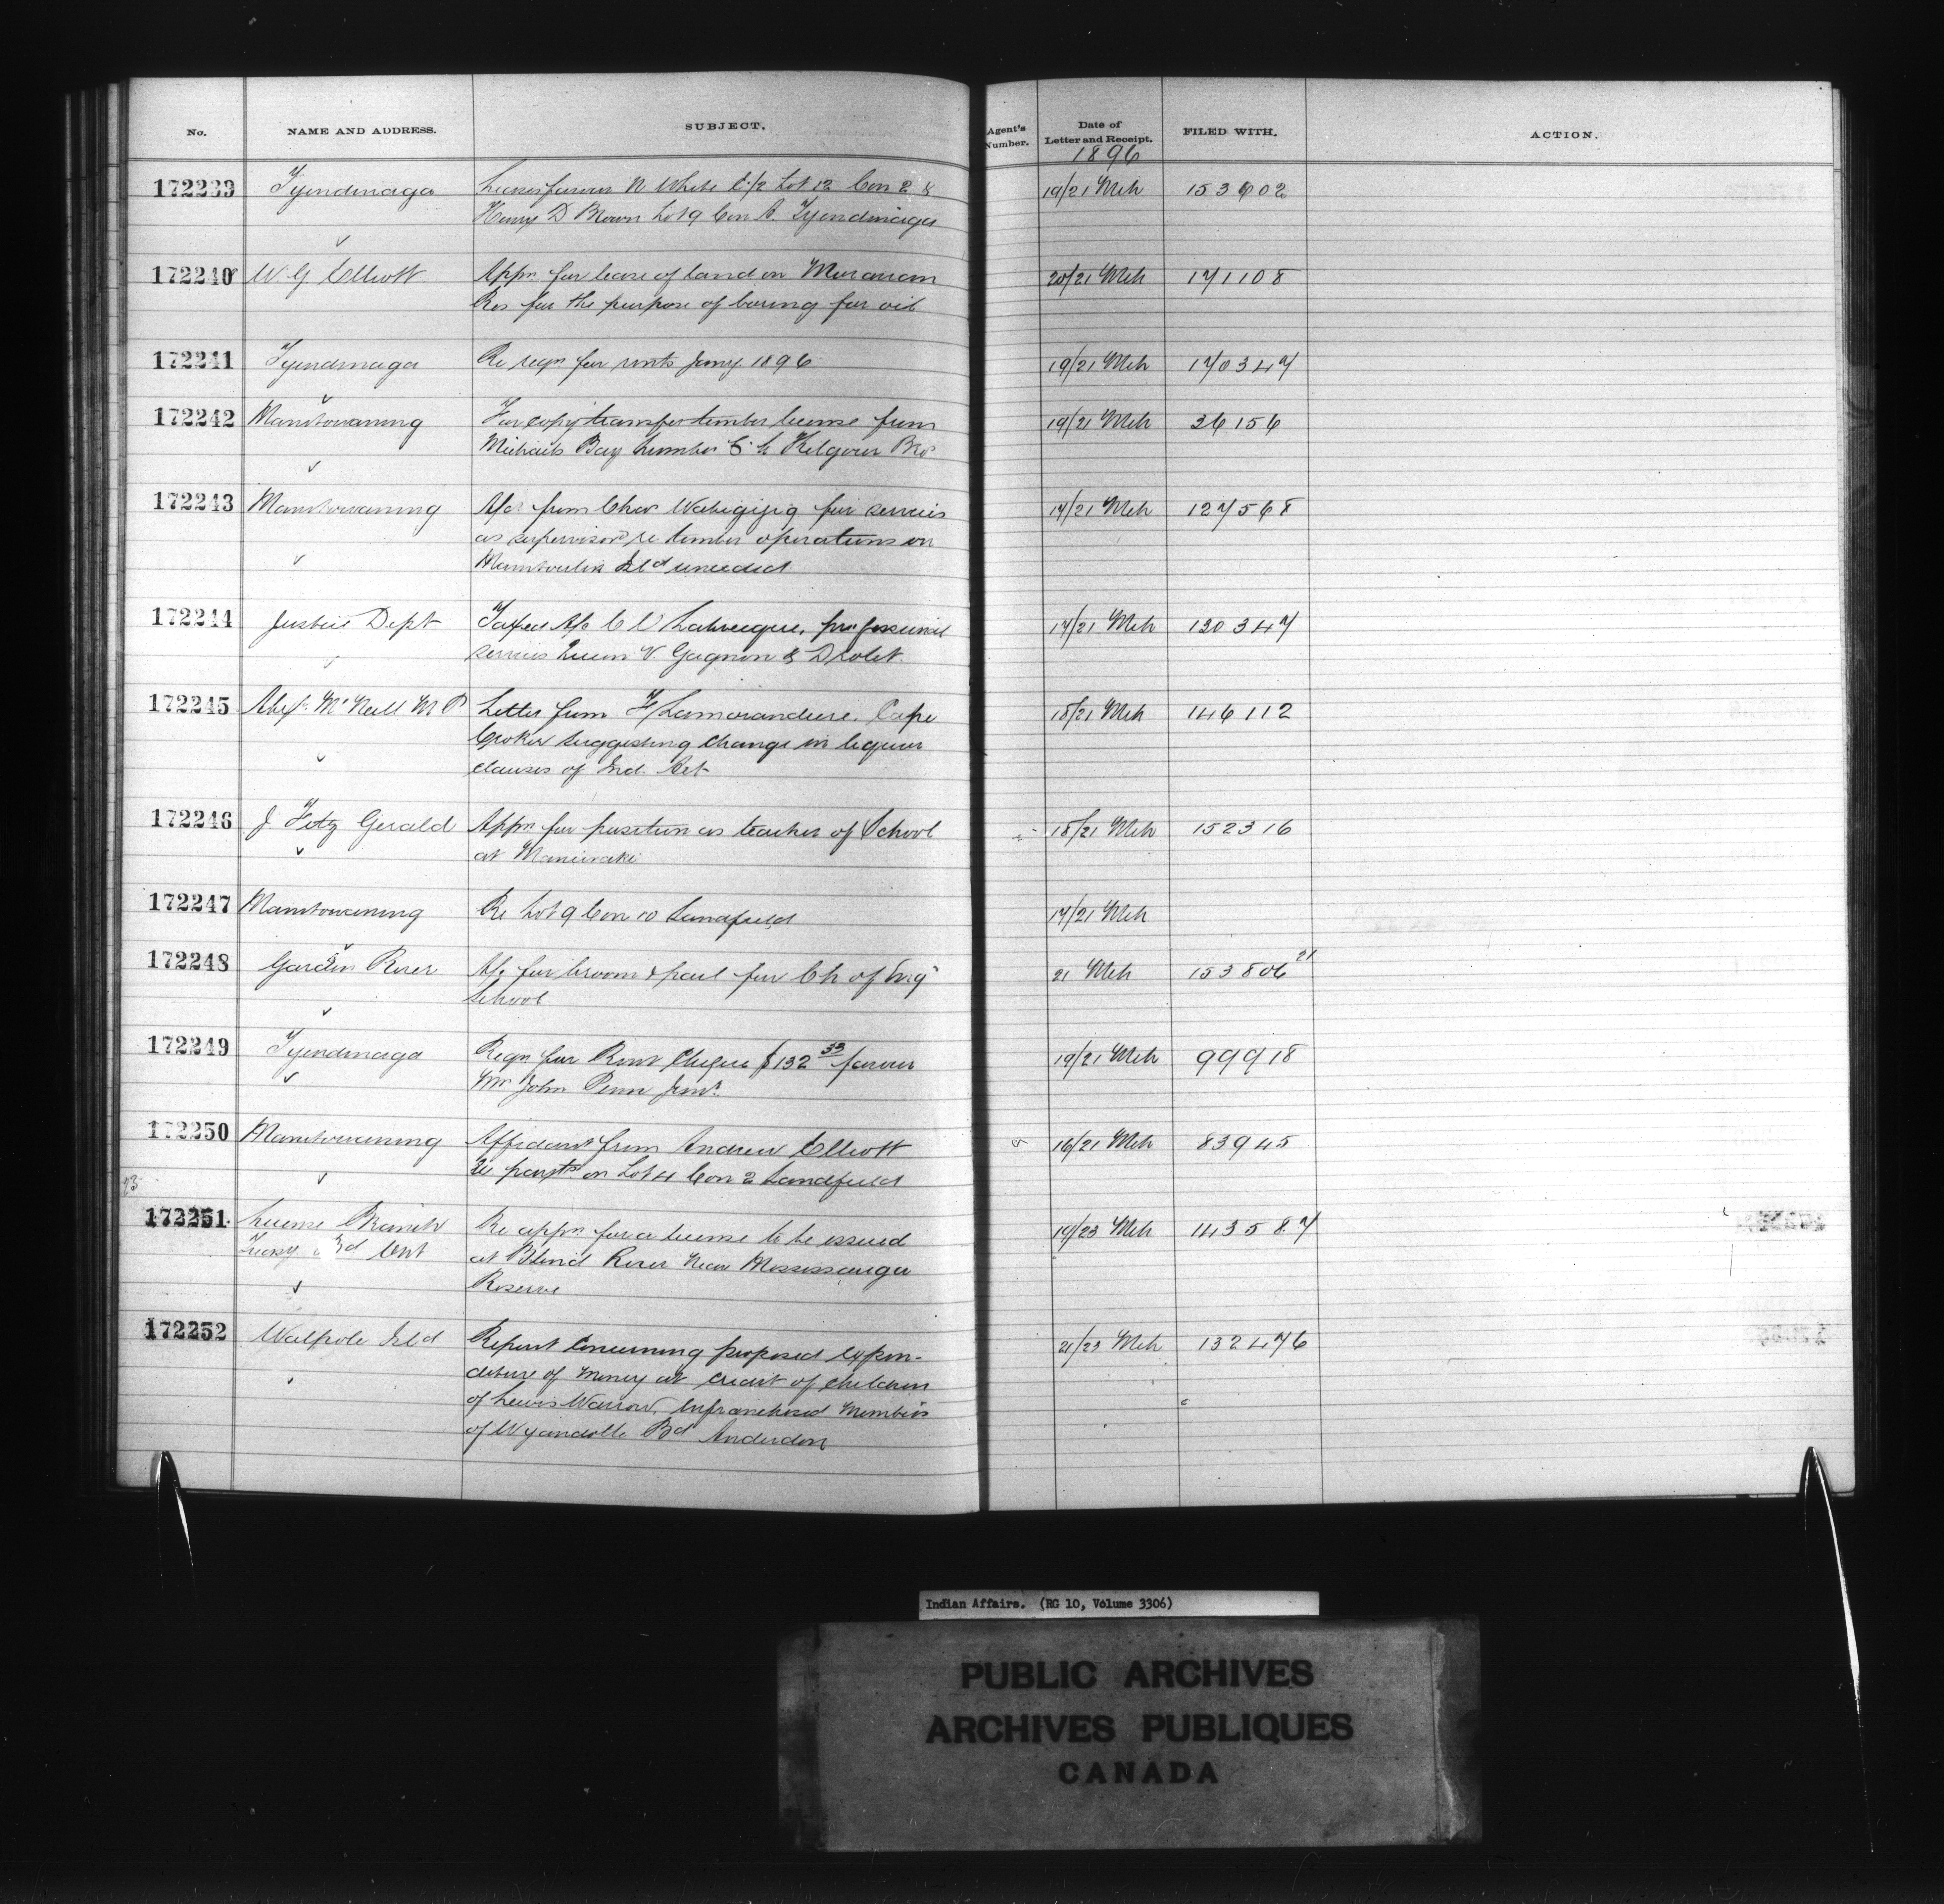 No. NAME AND ADDRESS. SUBJECT. Agent's Number. Date of Letter and Receipt. FILED WITH. ACTION.
1896
172239 Tyendinaga Licenses favour N. White E 1/2 Lot 12 Con 2 & 19/21 Mch 153602
Henry D Brown Lot 9 Con A. Tyendinaga
172240 W. G. Elliott Appn for lease of land on Moravian 20/21 Mch 171108
Res for the purpose of boring for oil
172241 Tyendinaga Re reqn for rents Jany. 1896 19/21 Mch 170347
172242 Manitowaning For copy transfer timber license from 19/21 Mch 36156
Michaels Bay Lumber Co to Kilgour Bros
172243 Manitowaning A/c from Chas Wabegijig for services 17/21 Mch 127568
as supervisor re timber operations on
Manitoulin Isld unceded
172244 Justice Dept Taxed A/c C V Labreque, professional 17/21 Mch 130347
services Queen V. Gagnon & Drolet.
172245 Alexr McNeill M P Letter from F Lamorandiere, Cape 18/21 Mch 146112
Croker suggesting change in liquor
clauses of Ind. Act
172246 J. Fitz Gerald Appn for position as teacher of School 18/21 Mch 152316
at Maniwaki
172247 Manitowaning Re Lot 9 Con 10 Sandfield 17/21 Mch
172248 Garden River A/c for broom & pail for Ch of Eng 21 Mch 153806 21
School
172249 Tyendinaga Reqn for Rent Cheque $132 33 favour 19/21 Mch 99918
Mr John Penn Junr.
172250 Manitowaning Affidavit from Andrew Elliott 16/21 Mch 83945
re paymts on Lot 4 Con 2 Sandfield
23
172251 License Branch Re appn for a license to be issued 19/23 Mch 143587
Treasy Ont at Blind River near Mississauga
Reserve
172252 Walpole Isld Report concerning proposed expen- 21/23 Mch 132476
diture of money at credit of children
of Lewis Warrow, Enfranchised Members
of Wyandotte Bd Anderdon
Indian Affairs. (RG 10, Volume 3306)
PUBLIC ARCHIVES
ARCHIVES PUBLIQUES
CANADA